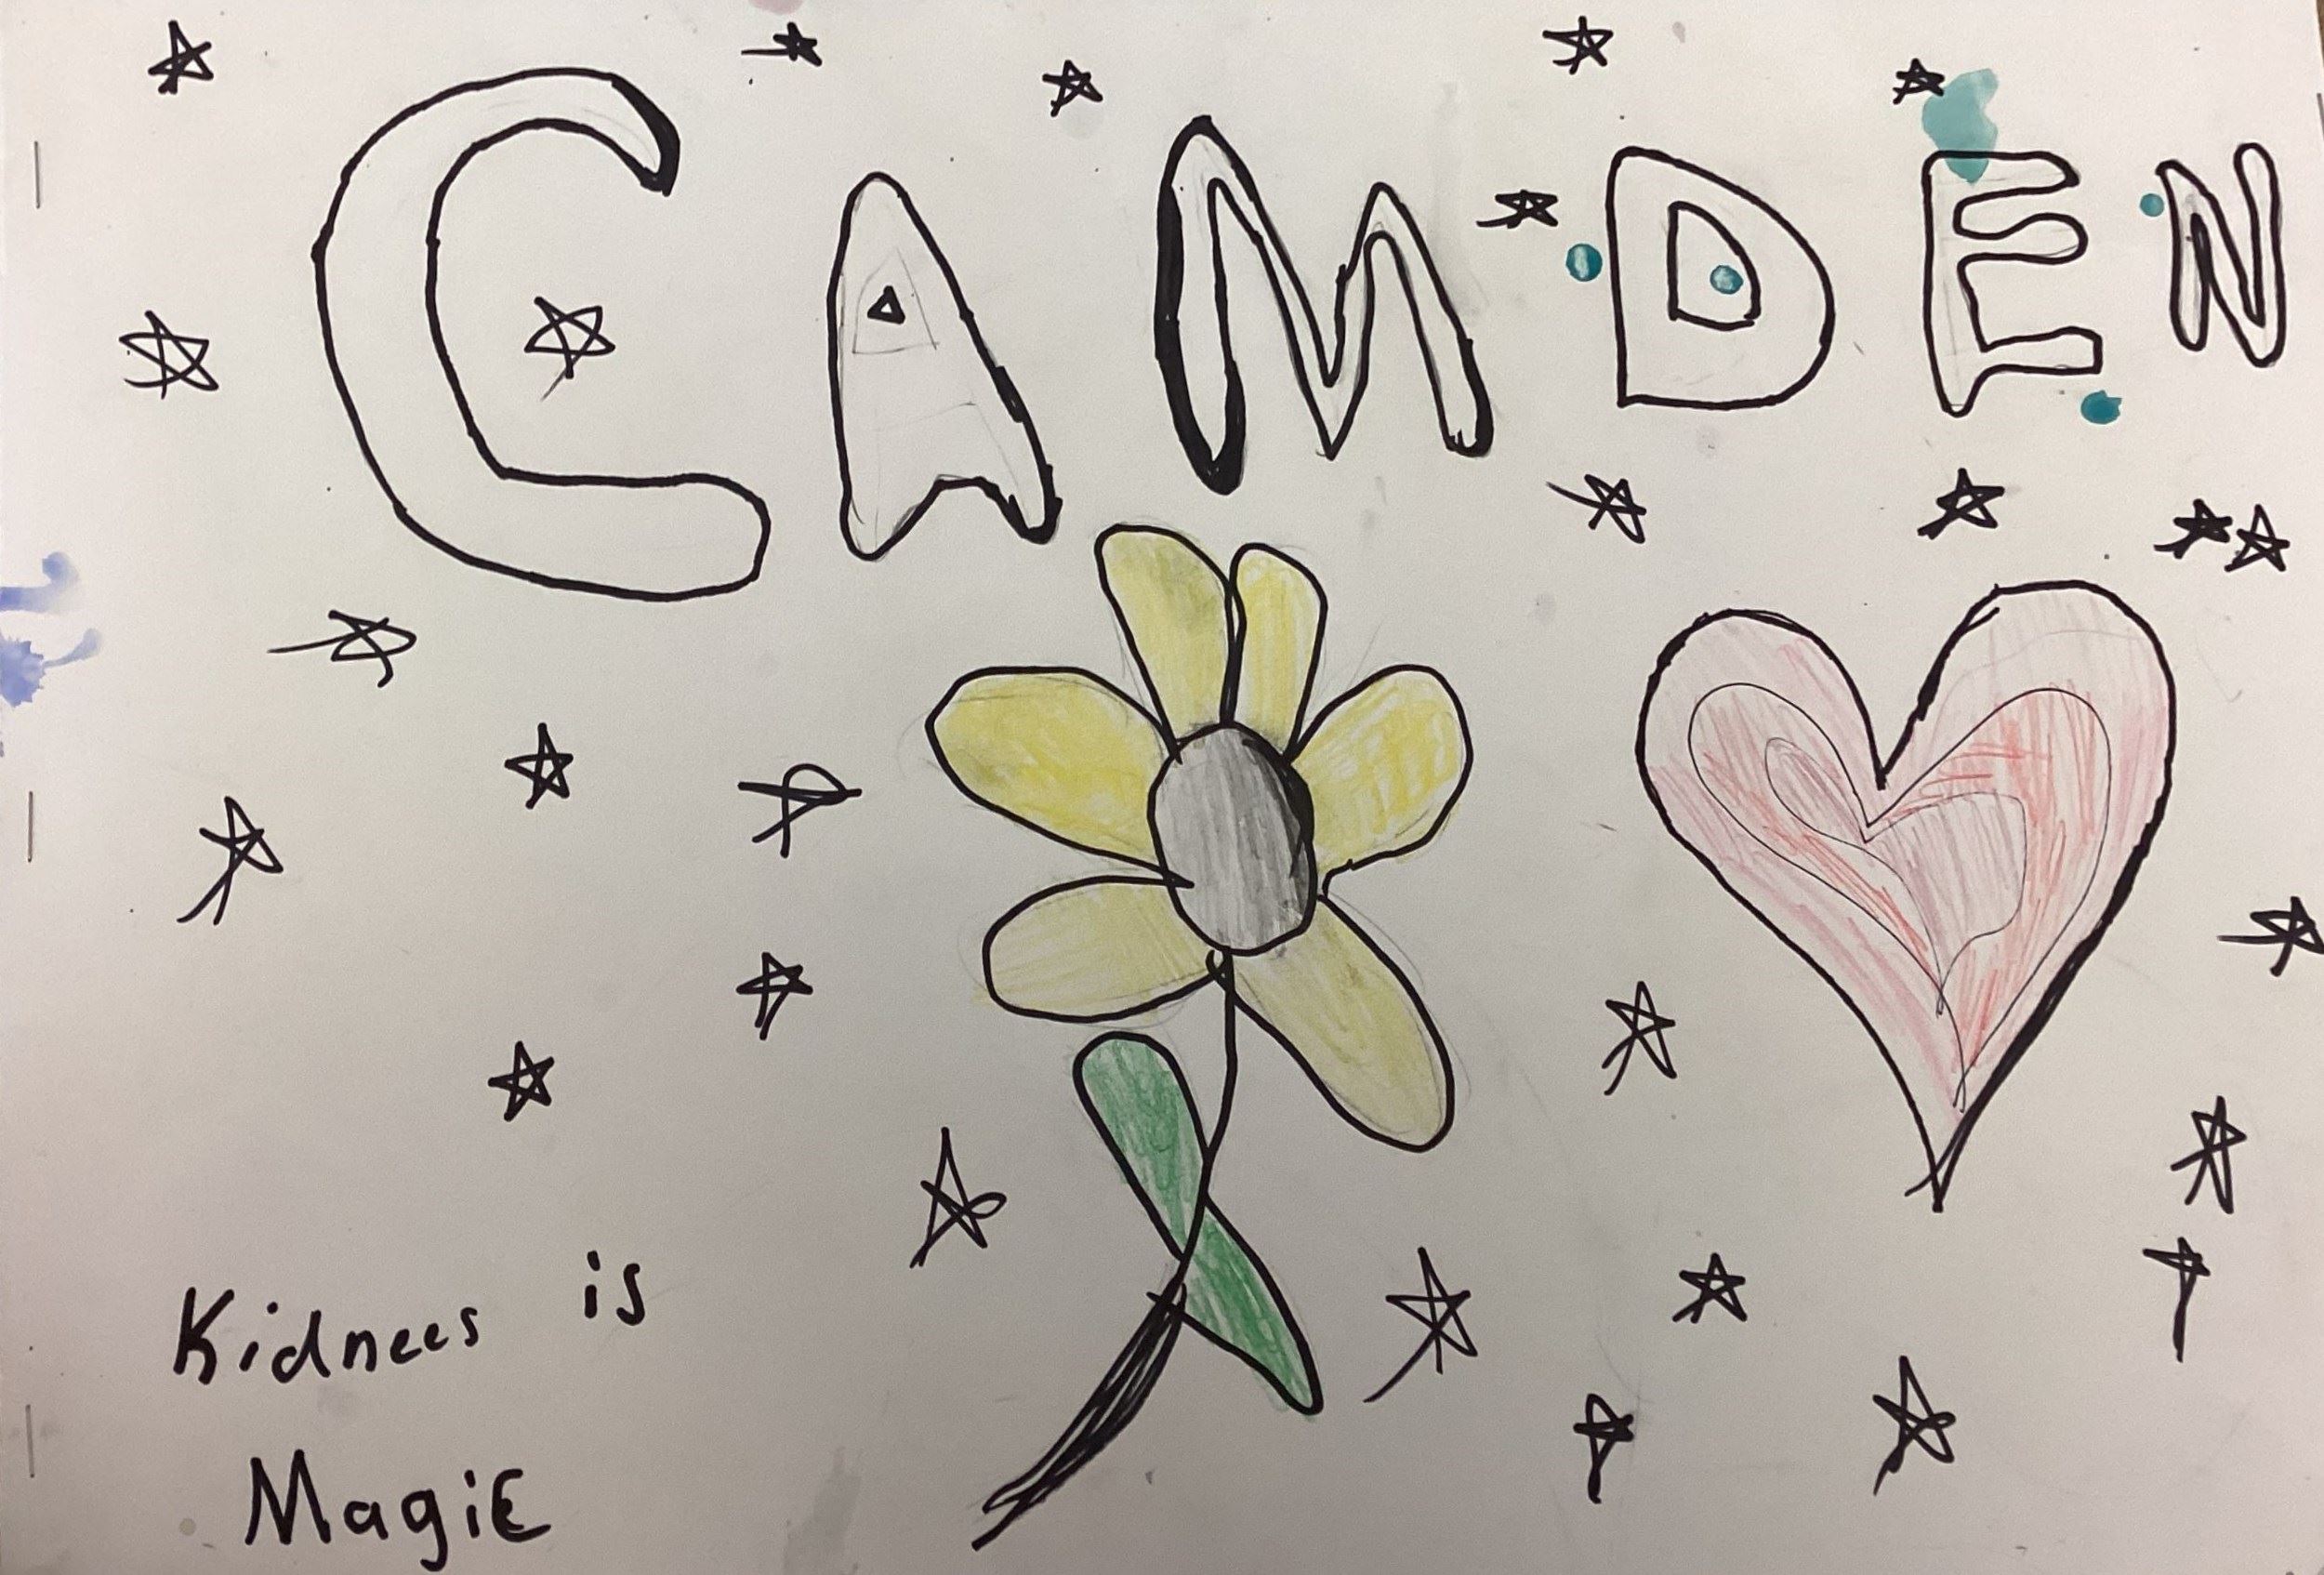 CAMDEN
Kidnees is
Magic